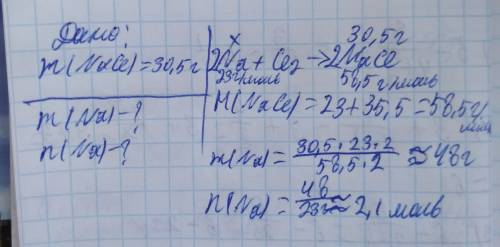 Дано:
m(NaCl)=30,5г
m(Na)-?
n(Na)-?
x 30,5г
2Na + Cl₂ → 2NaCl
23г/моль 58,5г/моль
M(NaCl)=23+35,5=58,5г/моль
m(Na)= 30,5·23·2 / 58,5·2 ≈48г
n(Na)= 48 / 23 ≈ 2,1 моль